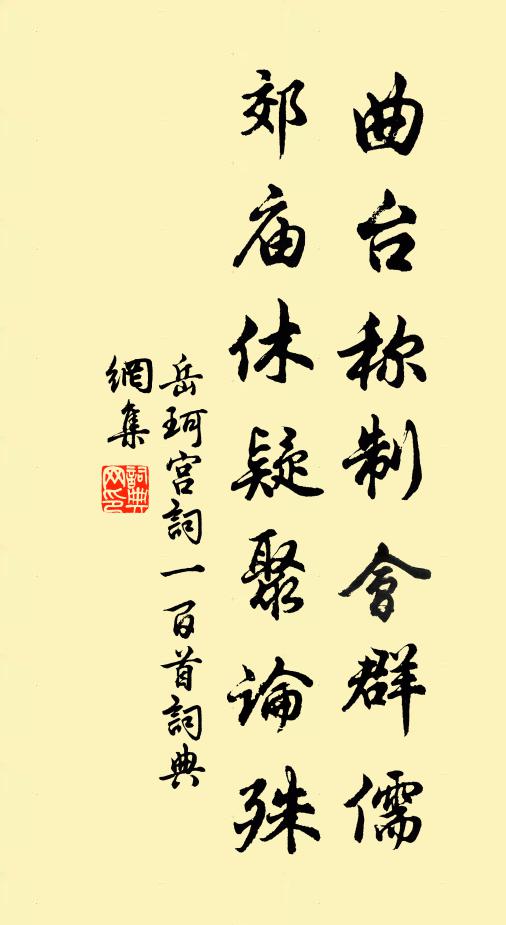 曲台称制会群儒
郊庙休疑聚论殊
岳珂宫词一百首词典
網集
詞典網印